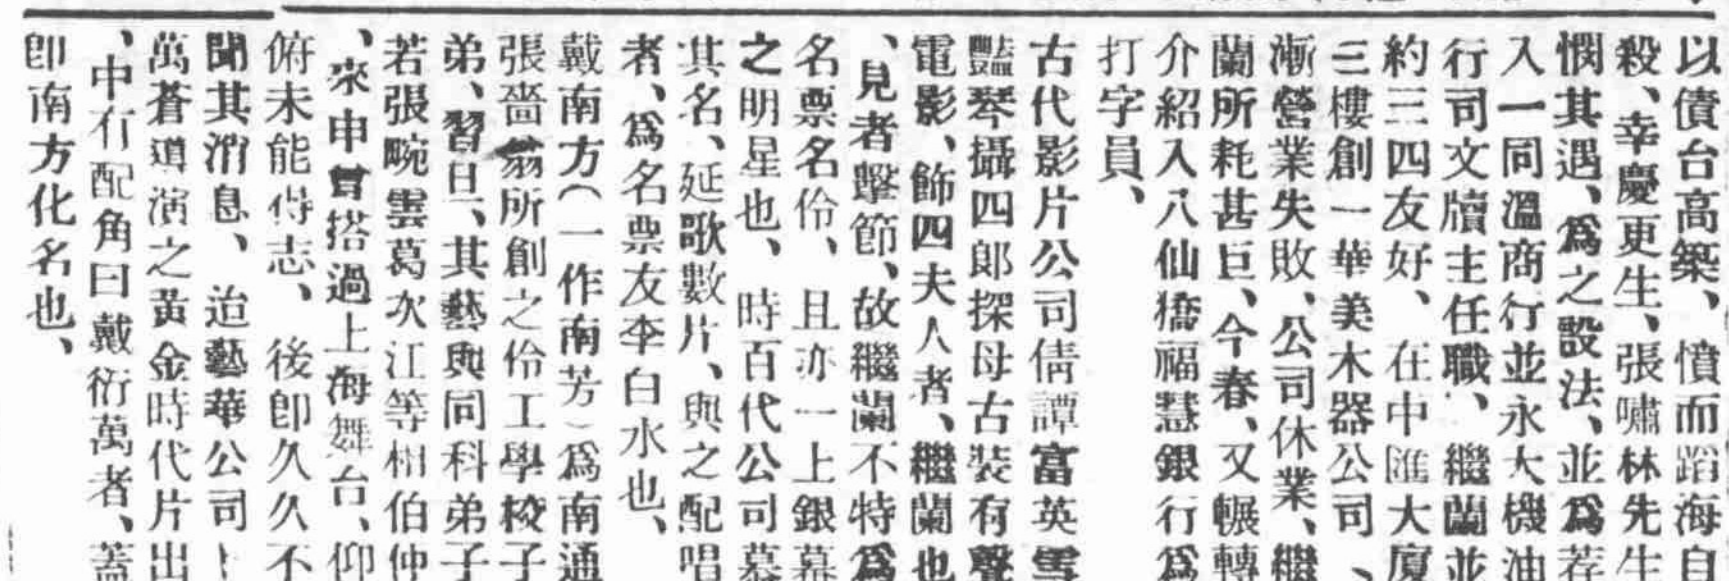 以債台高築、憤而蹈海自
殺、幸慶更生、張嘯林先生
憫其遇、爲之設法、並爲荐
入一同溫商行並永大機油
行司文牘主任職、繼蘭並
約三四友好、在中匯大廈
三樓創一華美木器公司、
漸營業失敗、公司休業、繼
蘭所耗甚巨、今春、又輾轉
介紹入八仙橋福慧銀行爲
打字員、
古代影片公司倩譚富英雪
豔琴攝四郎探母古裝有聲
電影、飾四夫人者、繼蘭也
、見者擊節、故繼蘭不特爲
名票名伶、且亦一上銀幕
之明星也、時百代公司慕
其名、延歌數片、與之配唱
者、爲名票友李白水也、
戴南方（一作南芳）爲南通
張嗇翁所創之伶工學校子
弟、習旦、其藝與同科弟子
若張畹雲葛次江等相伯仲
、來申曾搭過上海舞台、仰
俯未能得志、後卽久久不
聞其消息、迨藝華公司上
萬蒼道演之黃金時代片出
、中有配角曰戴衍萬者、蓋
卽南方化名也、